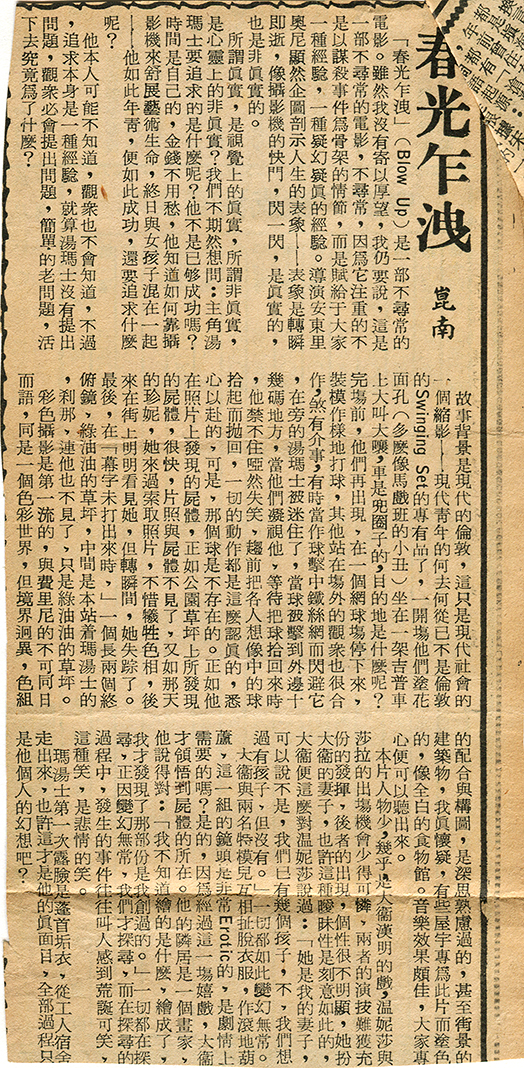 春光乍洩
崑南
「春光乍洩」(Blow Up)是一部不尋常的
電影。雖然我沒有寄以厚望,我仍要說,這是
一部不尋常的電影,不尋常,因爲它注重的不
是以謀殺事件爲骨架的情節,而是賦給于大家
一種經驗,一種疑幻疑眞的經驗。導演安東里
奧尼顯然企圖剖示人生的表象——表象是轉瞬
即逝,像攝影機的快門,閃一閃,是眞實的,
也是非眞實的。
所謂眞實,是視覺上的眞實,所謂非眞實,
是心靈上的非眞實?我們不期然想問:主角湯
瑪士要追求的是什麼呢?他不是已够成功嗎?
時間是自己的,金錢不用愁,他知道如何靠攝
影機來舒展藝術生命,終日與女孩子混在一起
——他如此年靑,便如此成功,還要追求什麼
呢?
他本人可能不知道,觀衆也不會知道,不過
,追求本身是一種經驗,就算湯瑪士沒有提出
問題,觀衆必會提出問題,簡單的老問題,活
下去究竟爲了什麼?
故事背景是現代的倫敦,這只是現代社會的
一個縮影——現代靑年的何去何從已不是倫敦
的Swinging Set的專有品了,一開場他們塗花
面孔(多麼像馬戲班的小丑)坐在一架吉普車
上大叫大嚷,車是兜圈子的,目的地是什麼呢?
完場前,他們再出現,在一個網球場停下來,
裝模作樣地打球,其他站在場外的觀衆也很合
作,煞有介事,有時當作球擊中鐵絲網而閃避它
,在旁的湯瑪士被迷住了,當球被擊到外邊十
幾碼地方,當他們凝視他,等待把球拾回來時
,他禁不住啞然失笑,趨前把各人想像中的球
拾起而拋回,一切的動作都是這麼認眞的,悉
心以赴的,可是,那個球是不存在的。正如他
在照片上發現的屍體,正如公園草坪上所發現
的屍體,很快,片照與屍體不見了,又如那天
的珍妮,她來過索取照片,不惜犧牲色相,後
來在街上明明看見她,但轉瞬間,她失踪了。
最後,在「幕字未打出來時,」一個長兩個終
俯鏡,綠油油的草坪,中間是本站着瑪湯士的
,刹那,連他也不見了,只是綠油油的草坪。
彩色攝影是第一流的,與費里尼的不可同日
而語,同是一個色彩世界,但境界迥異,色組
的配合與構圖,是深思熟慮過的,甚至街景的
建築物,我眞懷疑,有些屋宇專爲此片而塗色
的,像全白的食物館。音樂效果頗佳,大家專
心便可以聽出來。
本片人物少,幾乎是大衞漢明的戲,温妮莎與
莎拉的出場機會少得可憐,兩者的演技難獲充
份的發揮,後者的出現,個性很不明顯,她扮
大衞的妻子,也許這種曖昧性是刻意如此的,
大衞便這麼對温妮莎說過:「她是我的妻子,
可以說不是,我們已有幾個孩子,不,我們想
過有孩子,但沒有。」一切都如此變幻無常。
大衞與兩名特模兒互相扯脫衣服,作滾地葫
蘆,這一組的鏡頭是非常Erotic的,是劇情上
需要的嗎?是的,因爲經過這一場嬉戲,大衞
才領悟到屍體的所在。他的隣居是一個畫家,
他說得對:「我不知道繪的是什麼,繪成了,
我才發現了那部份是我創過的。」一切都在探
尋,正因變幻無常,我們才探尋,而在探尋的
過程中,發生的事件往往叫人感到荒誕可笑,
這種笑,是悲情的笑。
瑪湯士第一次露險是蓬首垢衣,從工人宿舍
走出來,也許這才是他的眞面目,全部過程只
是他個人的幻想吧?